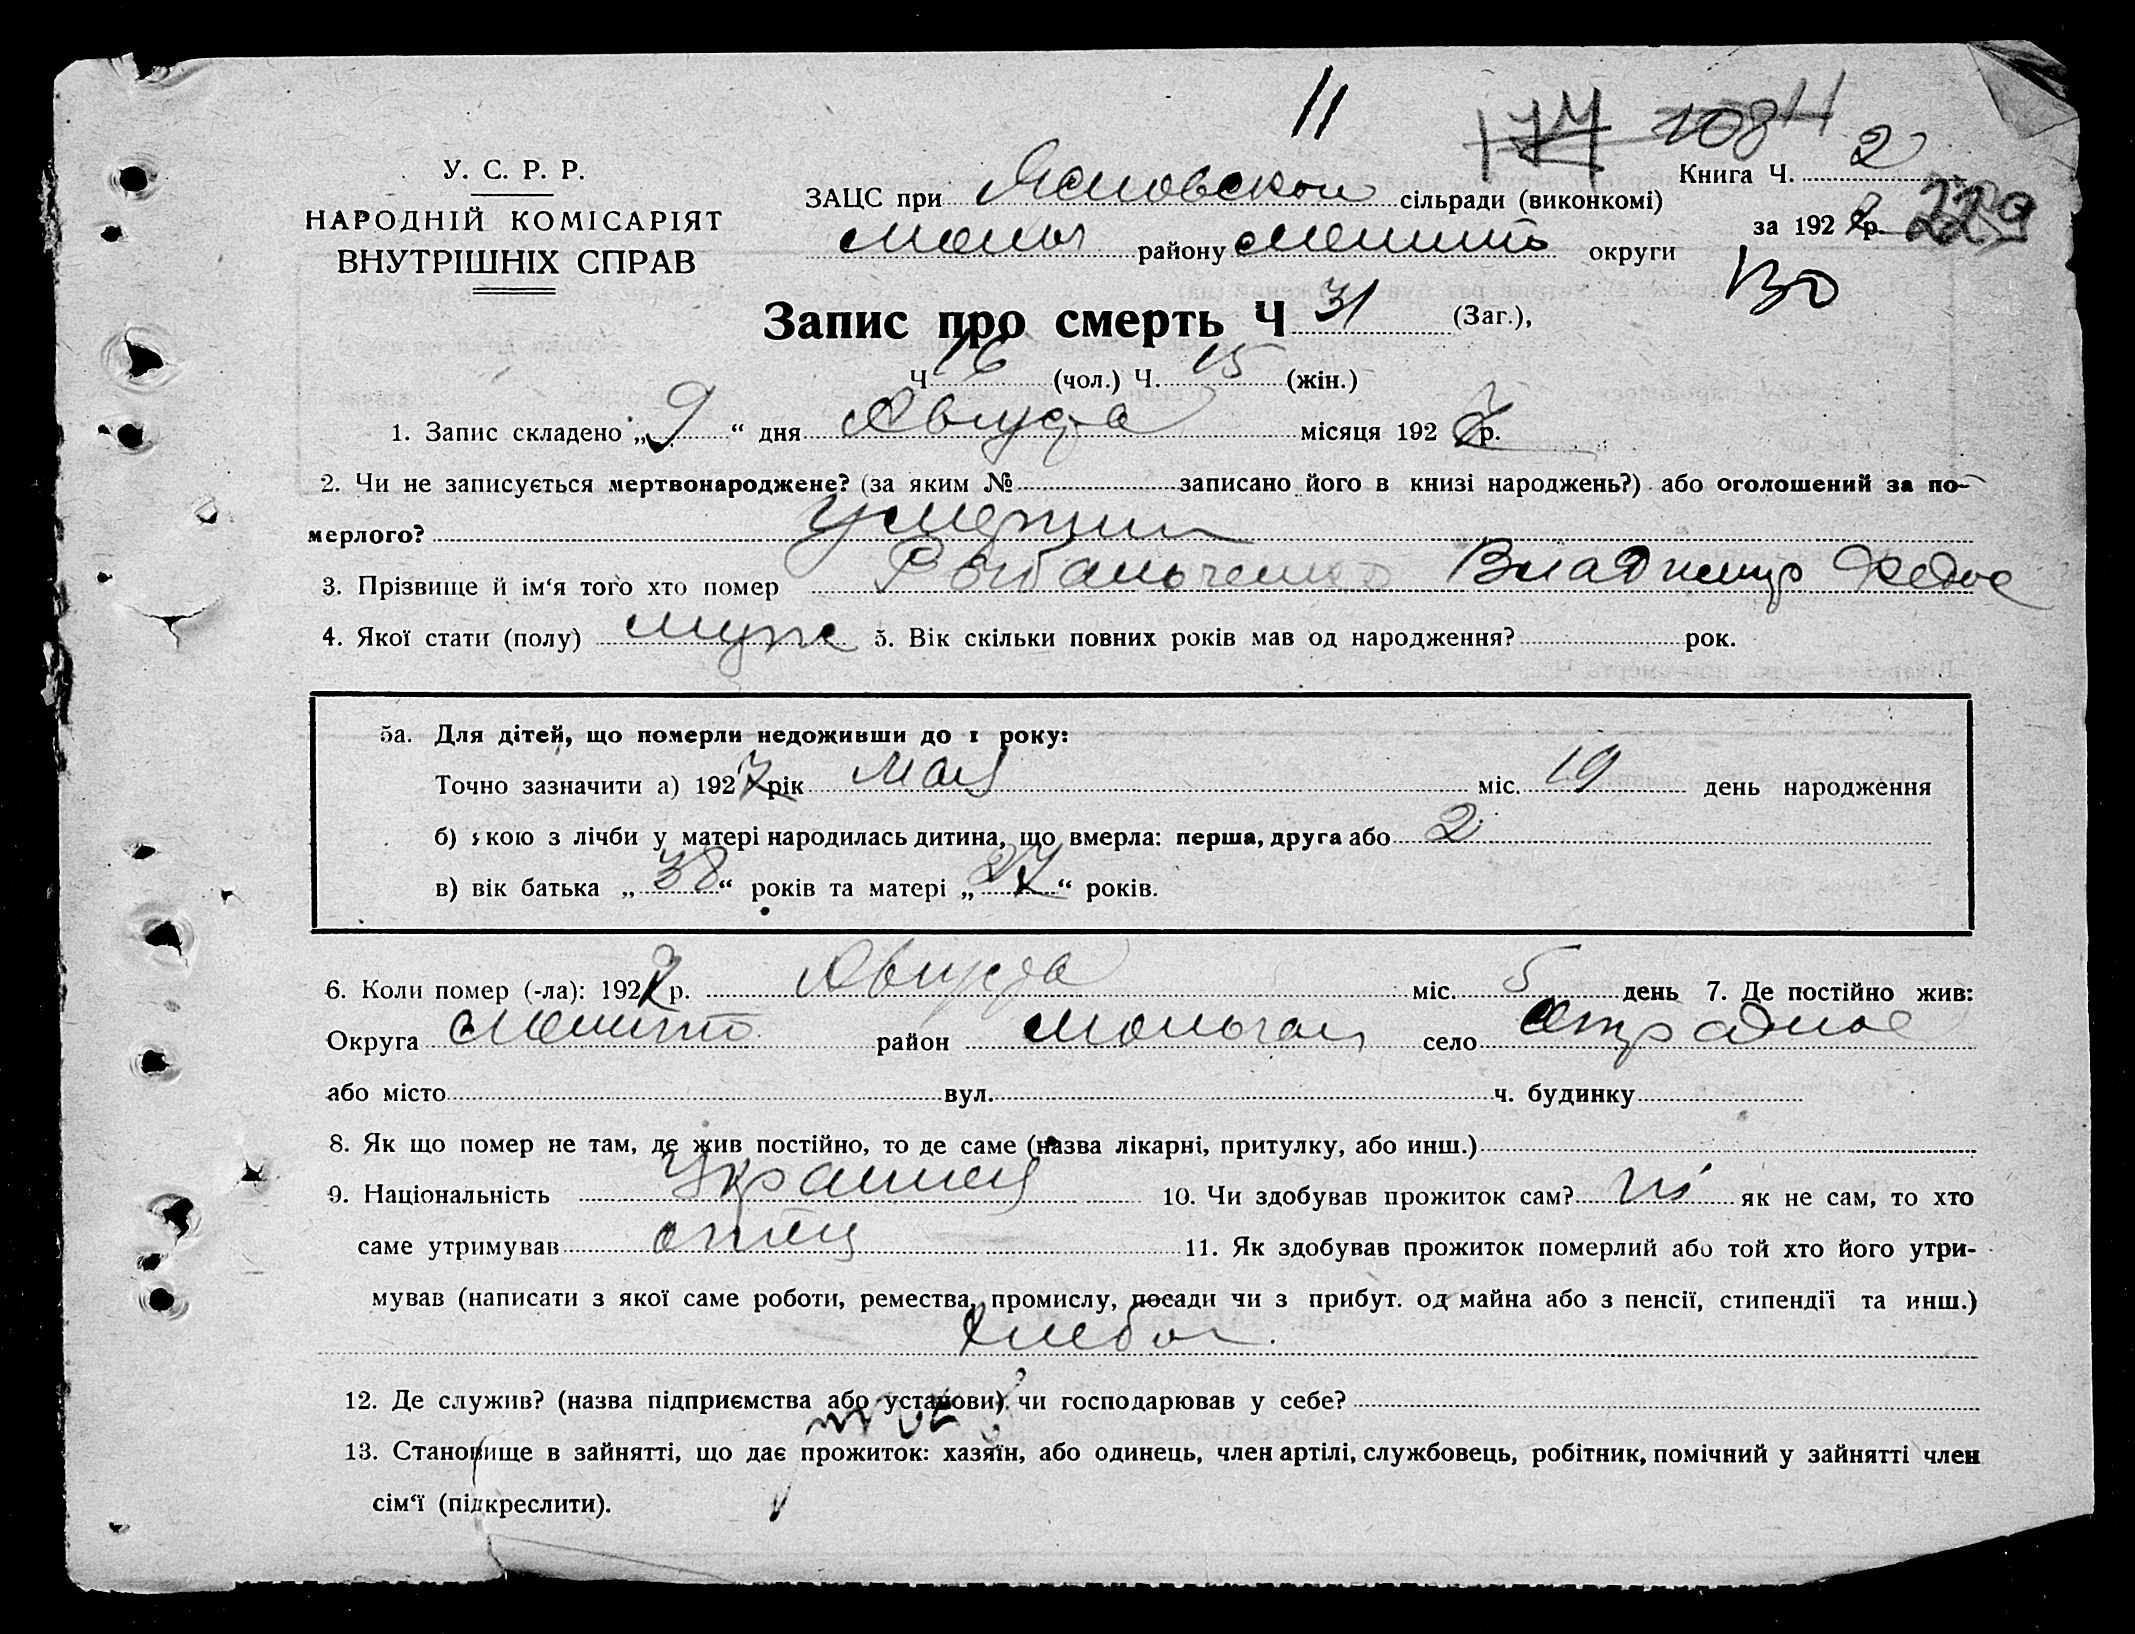 11
174 108 H
У. С. Р. Р.
НАРОДНІЙ КОМІСАРІЯТ
ВНУТРІШНІХ СПРАВ
ЗАЦС при сільради (виконкомі)
Книга Ч. 2
району округи
за 192 р. 229
130
Запис про смерть Ч 31 (Заг.),
Ч 16 (чол.) Ч. 15 (жін.)
1. Запис складено „ 9 “ дня Августа місяця 192 7 р.
2. Чи не записується мертвонароджене? (за яким № записано його в книзі народжень?) або оголошений за по-
мерлого? Умерший
3. Прізвище й ім‘я того хто помер Рыбальченко Владимир Федос
4. Якої стати (полу) муж 5. Вік скільки повних років мав од народження? рок.
5а. Для дітей, що померли недоживши до 1 року:
Точно зазначити а) 192 7 рік Мая міс. 19 день народження
б) якою з лічби у матері народилась дитина, що вмерла: перша, друга або 2
в) вік батька „ 38 “ років та матері „ 27 “ років.
6. Коли помер (-ла): 192 7 р. Августа міс. 5 день 7. Де постійно жив:
Округа район село Отрадное
або місто вул. ч. будинку
8. Як що помер не там, де жив постійно, то де саме (назва лікарні, притулку, або инш.)
9. Національність 10. Чи здобував прожиток сам? ні як не сам, то хто
саме утримував отец 11. Як здобував прожиток померлий або той хто його утри-
мував (написати з якої саме роботи, ремества, промислу, посади чи з прибут. од майна або з пенсії, стипендії та инш.)
Хлебоп.
12. Де служив? (назва підприємства або установи) чи господарював у себе?
13. Становище в зайнятті, що дає прожиток: хазяїн, або одинець, член артілі, службовець, робітник, помічний у зайнятті член
сім‘ї (підкреслити).